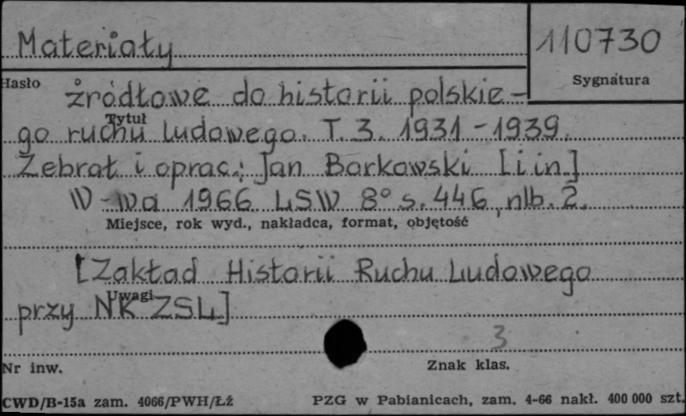 Materiały
110730
Hasło
Sygnatura
źródłowe do historii polskie-
Tytuł
go ruchu ludowego. T. 3. 1931-1939.
Zebrał i oprac.: Jan Borkowski [i in.]
W-wa 1966 LSW 8° s. 446, nlb. 2.
Miejsce, rok wyd., nakładca, format, objętość
[Zakład Historii Ruchu Ludowego
Uwagi
przy NK ZSL]
3
Nr inw.
Znak klas.
CWD/B-15a zam. 4066/PWH/Łź
PZG w Pabianicach, zam. 4-66 nakł. 400 000 szt.